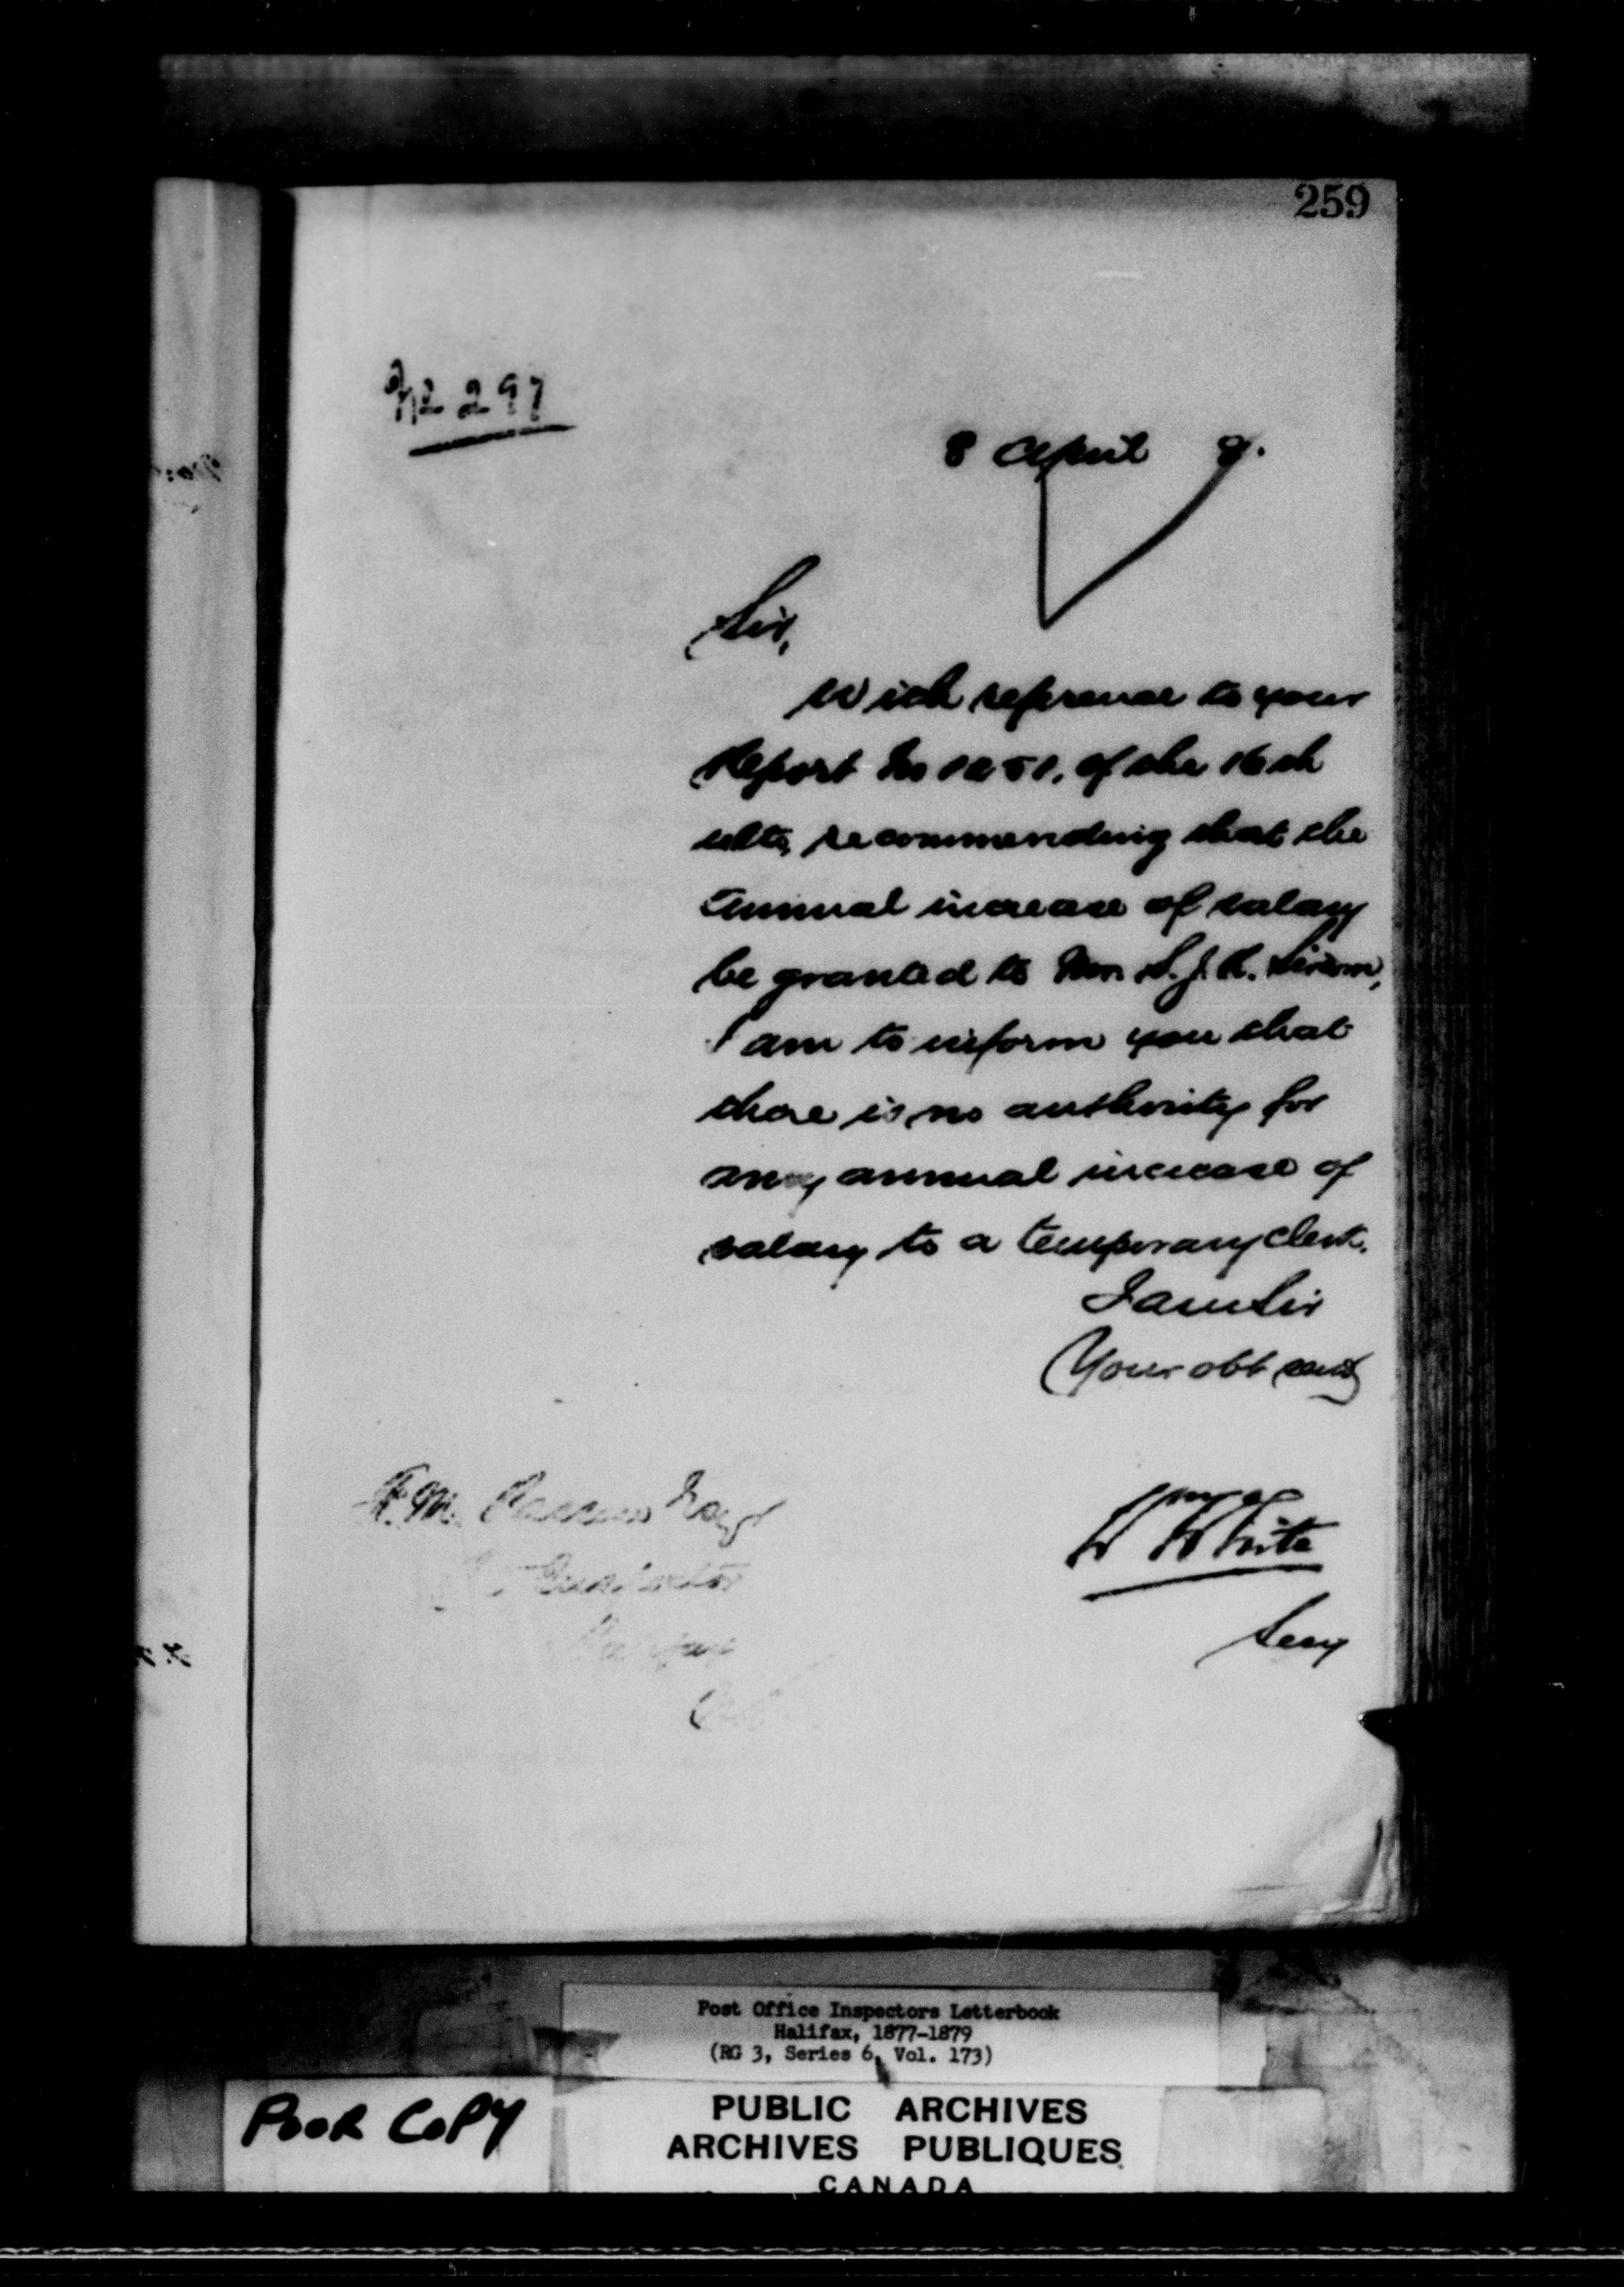 259
297
8 April 9.
Sir,
With reference to your
Report No 1251. of the 16th
ulto, recommending that the
annual increase of salary
be granted to Mr. S. J. R.
I am to inform you that
there is no authority for
any annual increase of
salary to a temporary clerk.
I am Sir
Your obt servt
W White
Secy
F. M. Passow Esqr
Inspector
Halifax
Post Office Inspectors Letterbook
Halifax, 1877-1879
(RG 3, Series 6, Vol. 173)
POOR COPY
PUBLIC ARCHIVES
ARCHIVES PUBLIQUES
CANADA